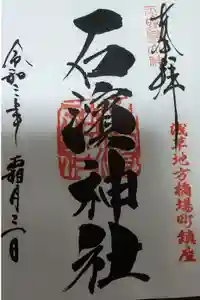 奉拝
浅草地方橋場町鎮座
石濱神社
令和二年
霜月三日